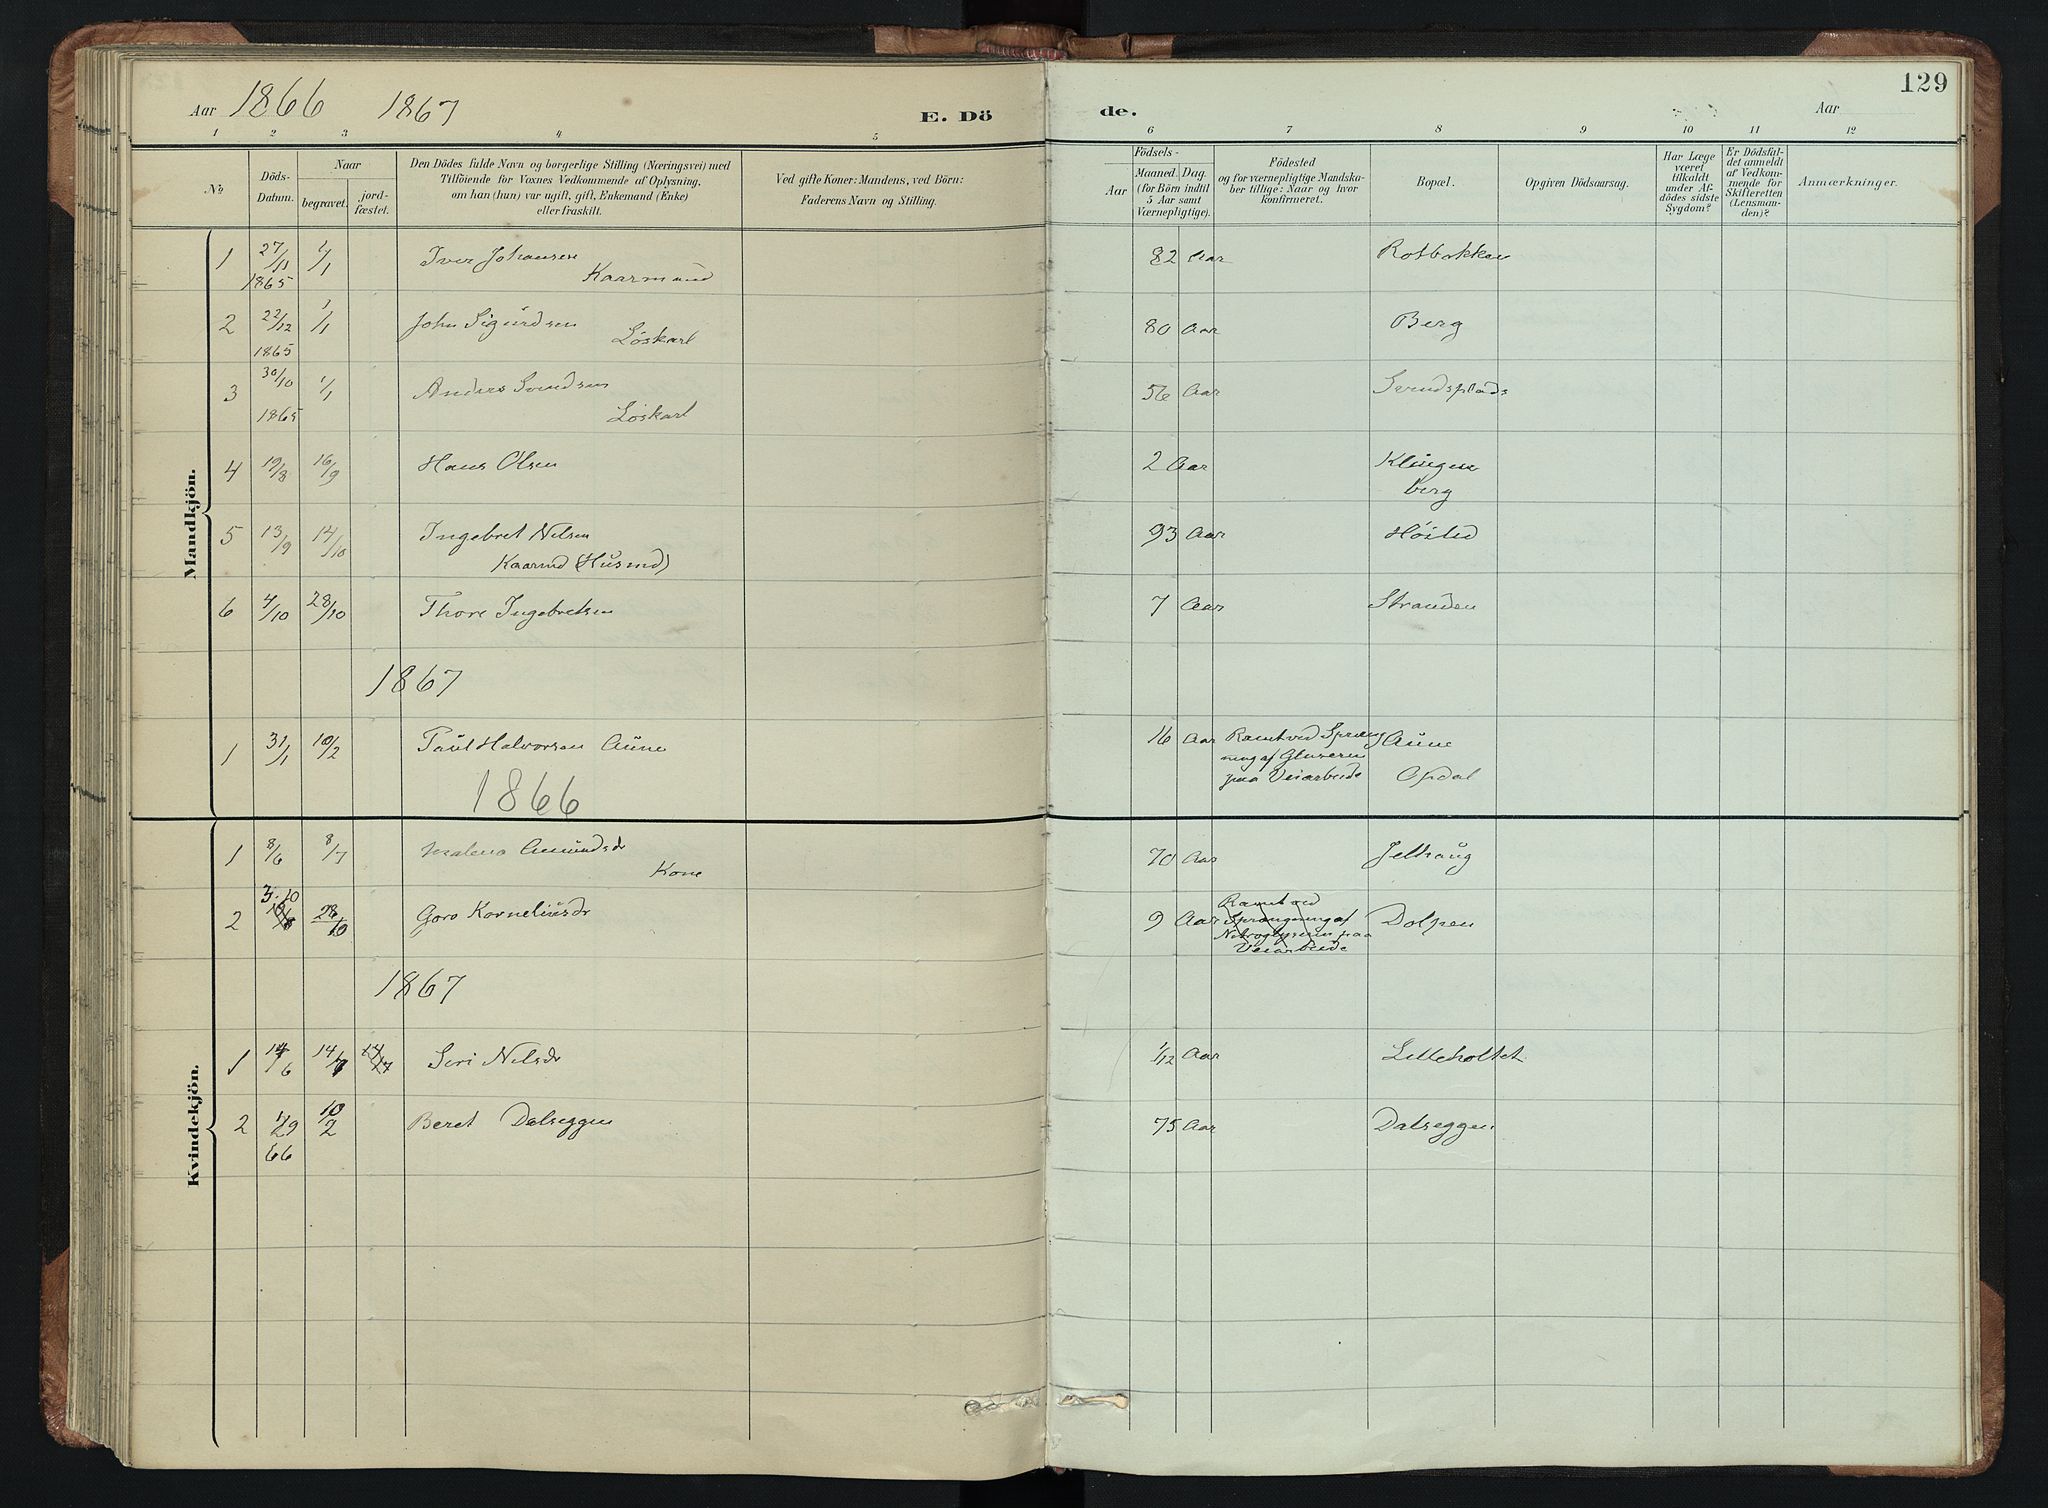 129
Aar 1866 1867 E. Dö de. Aar
1 2 3 4 5 6 7 8 9 10 11 12
No
Döds-
Datum.
Naar
begravet.
jord-
fæstet.
Den Dödes fulde Navn og borgerlige Stilling (Næringsvei) med
Tilföiende for Voxnes Vedkommende af Oplysning,
om han (hun) var ugift, gift, Enkemand (Enke)
eller fraskilt.
Ved gifte Koner: Mandens, ved Börn:
Faderens Navn og Stilling.
Födsels-
Aar
Maaned. Dag.
(for Börn indtil
5 Aar samt
Værnepligtige).
Födested
og for værnepligtige Mandska-
ber tillige: Naar og hvor
konfirmeret.
Bopæl.
Opgiven Dödsaarsag.
Har Læge
været
tilkaldt
under Af-
dödes sidste
Sygdom?
Er Dödsfal-
det anmeldt
af Vedkom-
mende for
Skifteretten
(Lensman-
den)?
Anmærkninger.
Mandkjön.
1 27/11 1/1 Iver Johansen 82 Aar Rotbakken
1865 Kaarmand
2 22/12 1/1 John Sigurdsen 80 Aar Berg
1865 Löskarl
3 30/10 1/1 Anders Svendsen 56 Aar Svendsplads
1865 Löskarl
4 19/8 16/9 Hans Olsen 2 Aar Klingen
berg
5 13/9 14/10 Ingebret Nilsen 93 Aar Höilid
Kaarmd (Husmd)
6 4/10 28/10 Thore Ingebretsen 7 Aar Stranden
1867
1 31/1 10/2 Paul Halvorsen Aune 16 Aar Ramt ved Spræng Aune
ning af
paa Veiarbeide Opdal
1866
Kvindekjön.
1 8/6 8/7 Malena Amundsdr 70 Aar Jelhaug
Kone
2 3.10 28/10 Goro Korneliusdr 9 Aar Ramt ved
Sprængning af Dolpen
paa
Veiarbeide
1867
1 14/6 14/7 14/7 Siri Nilsdr 1/12 Aar Lilleholtet
2 10/2 Beret Dalseggen 75 Aar Dalseggen
66